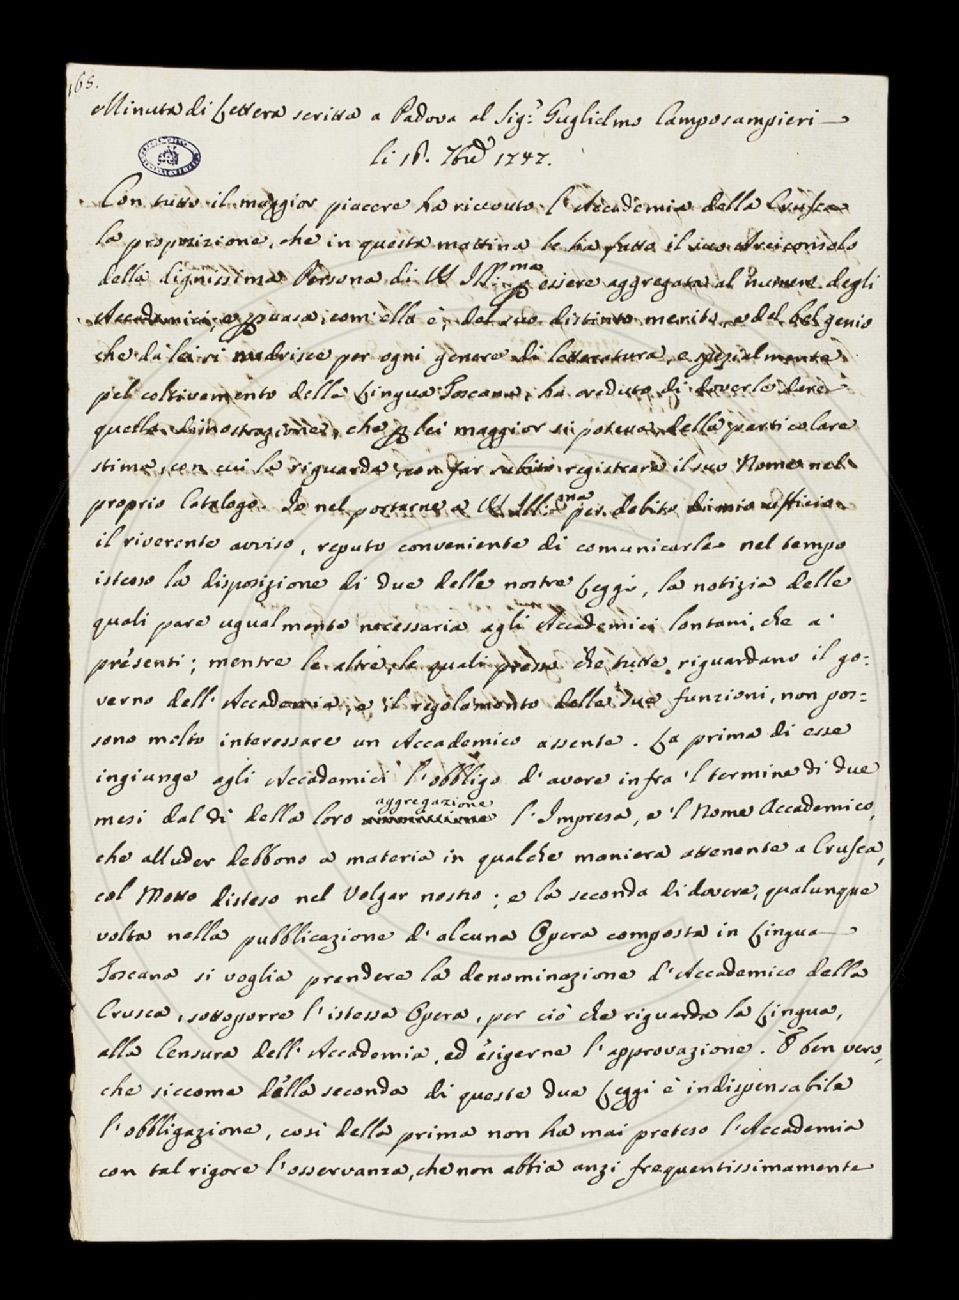 168.
Minuta di Lettera scritta a Padova al Sig.r Guglielmo Camposampieri
li 18. 7bre 1747.
Con tutto il maggior piacere ha ricevuto l'Accademia della Crusca
la proposizione, che in questa mattina le ha fatta il suo Arciconsolo
della dignissima Persona di VS Ill:ma p essere aggregata al numero degli
Accademici, e p suasa, com'ella è, del suo distinto merito, e del bel genio
che da lei si nudrisce per ogni genere di letteratura, e spezialmente
pel coltivamento della Lingua Toscana, ha creduto di doverle dare
quella dimostrazione, che p lei maggior si poteva, della particolare
stima, con cui la riguarda, con far subito registrare il suo Nome nel
proprio Catalogo. Io nel portarne a VS Ill:ma per debito di mio ufficio
il riverente avviso, reputo conveniente di comunicarle nel tempo
istesso la disposizione di due delle nostre Leggi, la notizia delle
quali pare ugualmente necessaria agli Accademici lontani, che a'
presenti; mentre le altre, le quali presso che tutte riguardano il go=
verno dell'Accademia, e il regolamento delle sue funzioni, non pos=
sono molto interessare un Accademico assente. La prima di esse
ingiunge agli Accademici l'obbligo d'avere infra 'l termine di due
mesi dal dì della loro aggregazione l'Impresa, e 'l Nome Accademico,
che alluder debbono a materia in qualche maniera attenente a Crusca,
col Motto disteso nel Volgar nostro; e la seconda di dovere, qualunque
volta nella pubblicazione d'alcuna Opera composta in Lingua
Toscana si voglia prendere la denominazione d'Accademico della
Crusca, sottoporre l'istessa Opera, per ciò che riguarda la Lingua,
alla Censura dell'Accademia, ed esigerne l'approvazione. È ben vero,
che siccome della seconda di queste due Leggi è indispensabile
l'obbligazione, così della prima non ha mai preteso l'Accademia
con tal rigore l'osservanza, che non abbia anzi frequentissimamente